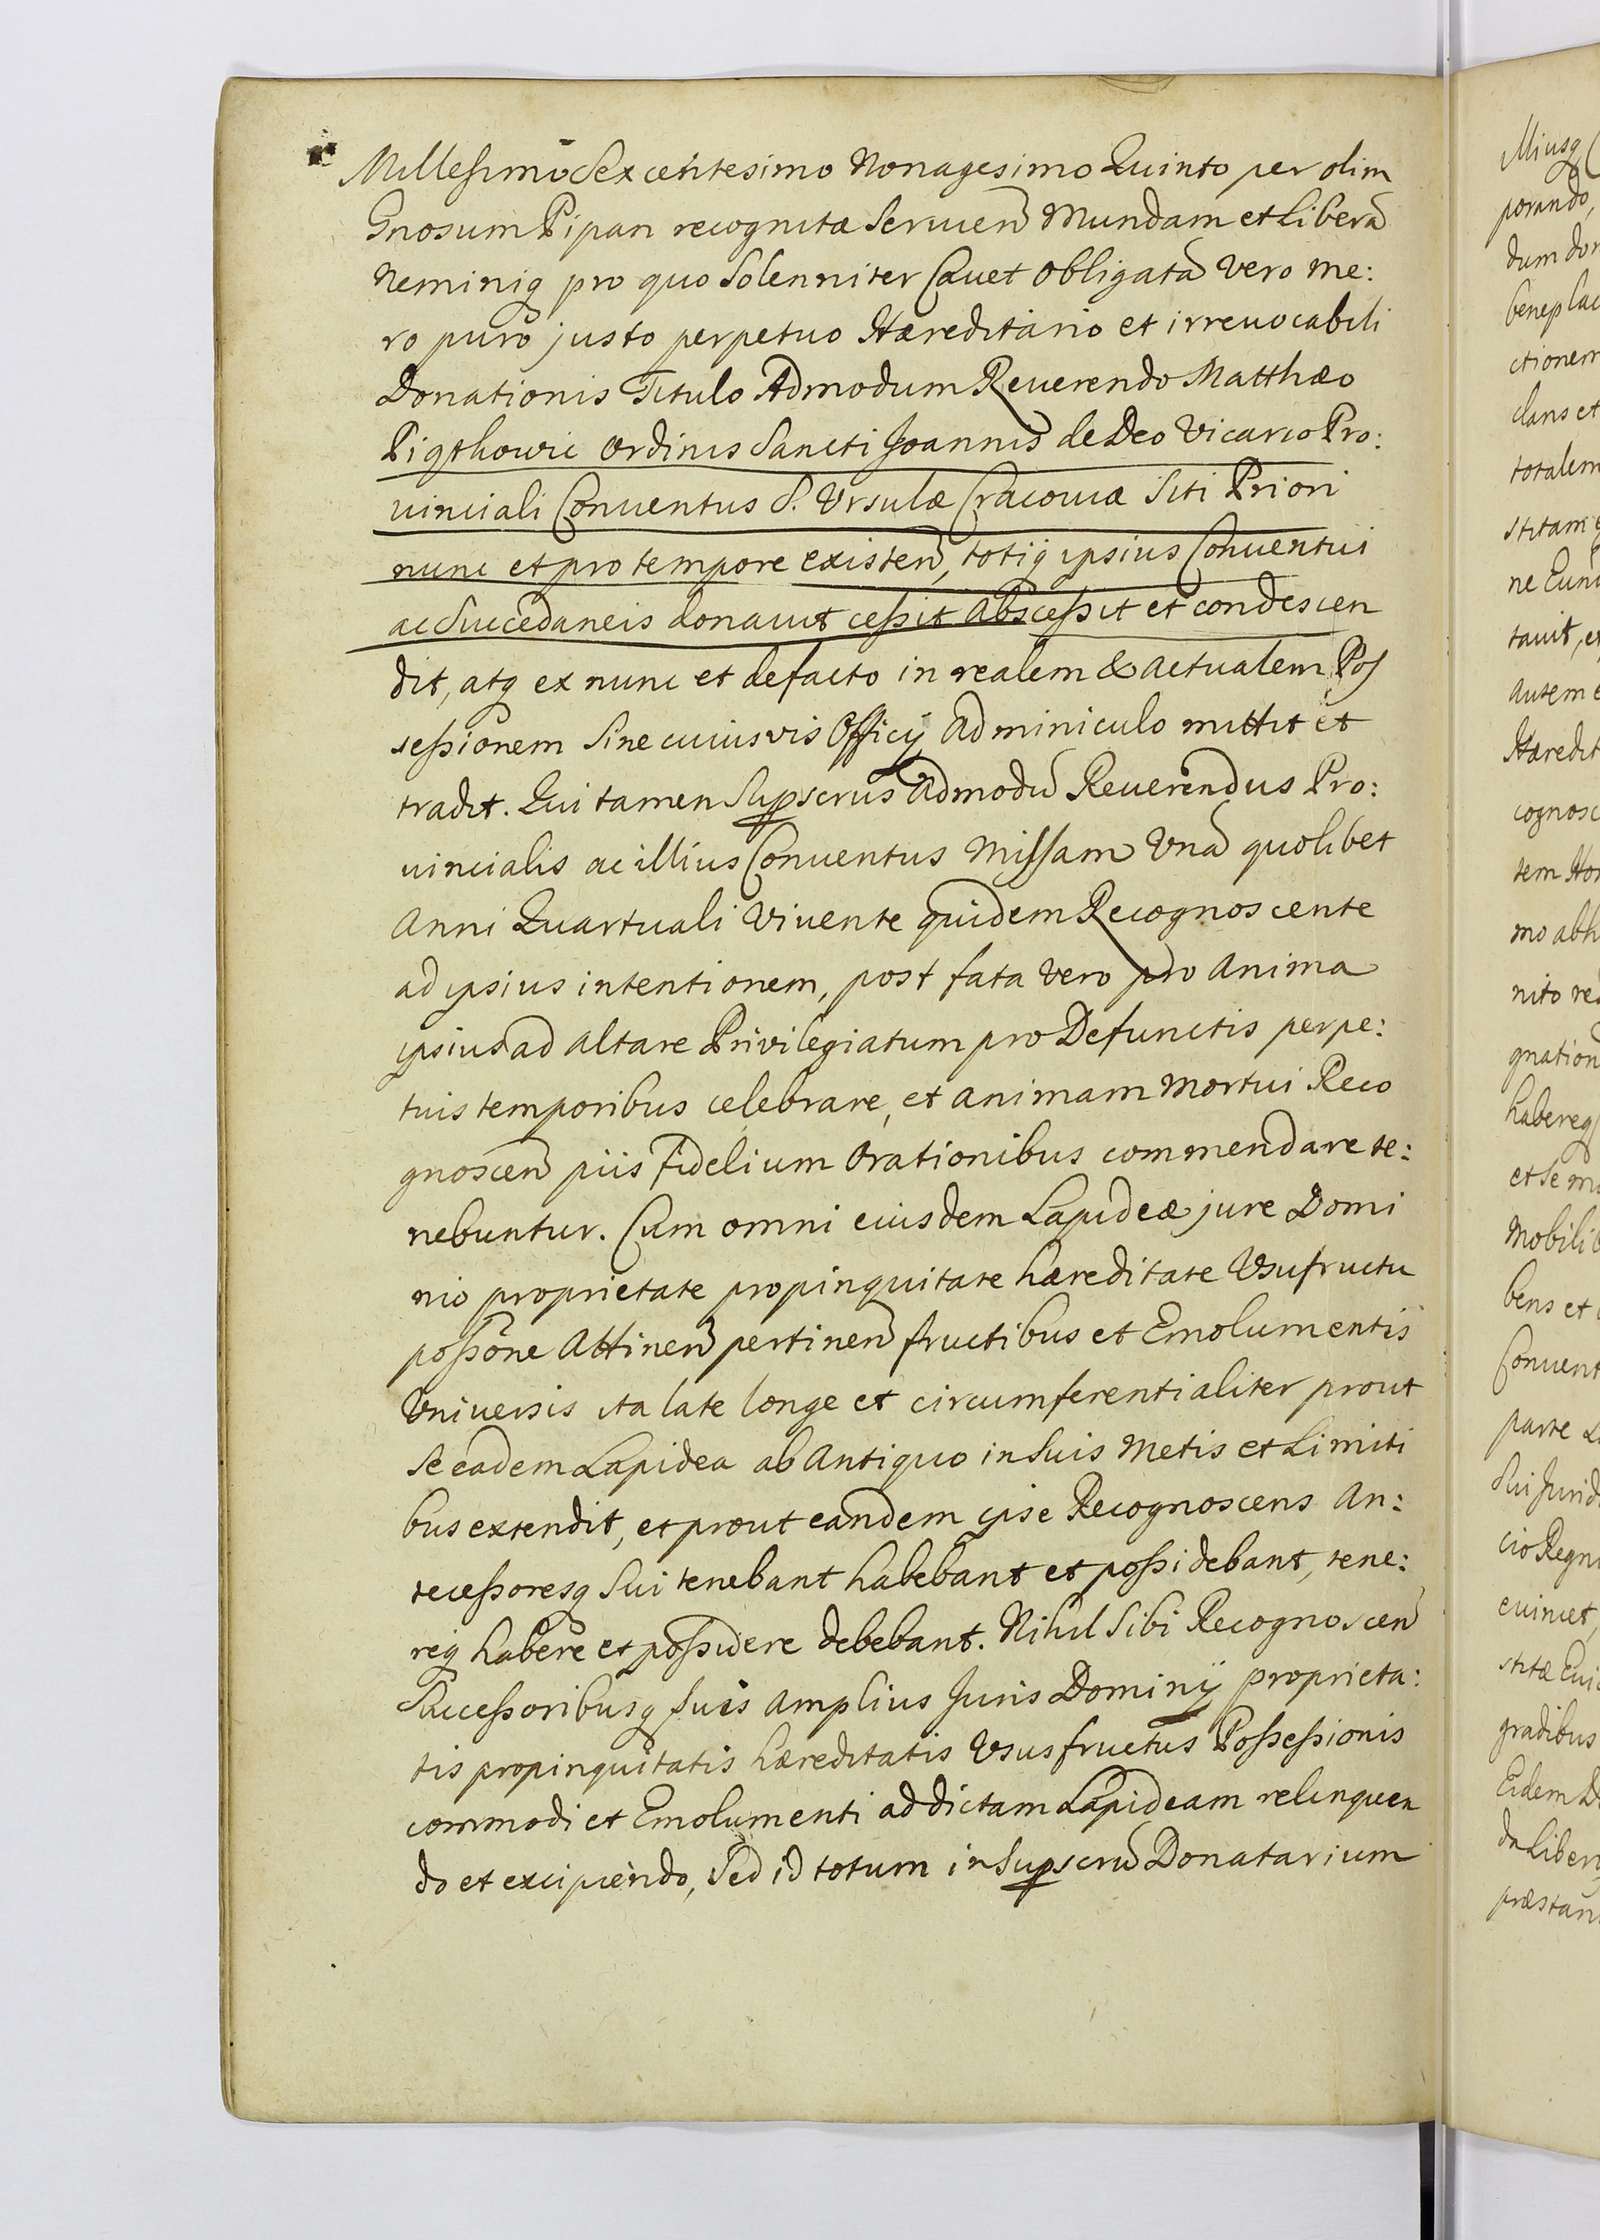 Millesimo Sexcentesimo Nonagesimo Quinto per olim
Gnosum Pipan recognitæ seruien Mundam et Liberã
Neminiq pro quo Solenniter Cavet obligatã vero me:
ro puro justo perpetuo Hæreditario et irreuocabili
Donationis Titulo Admodum Reuerendo Matthæo
Piąthowic Ordinis Sancti Joannis de Deo Vicario Pro:
uinciali Conuentus S. Vrsulæ Cracouiæ Siti Priori
nunc et pro tempore existen, totiq ipsius Conuentui
ac Succedaneis donauit cessit Abscessit et condescen
dit, atq ex nunc et defacto in realem & actualem Pos
sessionem Sine cuiusvis Officij Adminiculo mittit et
tradit. Qui tamen Supscrus Admodũ Reuerendus Pro:
uincialis ac illius Conuentus Missam Vnã quolibet
Anni Quartuali Vivente quidem Recognoscente
ad ipsius intentionem, post fata vero pro Anima
ipsius ad Altare Privilegiatum pro Defunctis perpe:
tuis temporibus celebrare, et Animam Mortui Reco
gnoscen piis Fidelium Orationibus commendare te:
nebuntur. Cum omni eiusdem Lapideæ jure Domi
nio proprietate propinquitate hæreditate Vsufructu
possone Attinen pertinen fructibus et Emolumentis
Vniuersis ita late longe et circumferentialiter prout
Se eadem Lapidea ab Antiquo in Suis Metis et Limiti
bus extendit, et prout eandem ipse Recognoscens An:
tecessoresq Sui tenebant habebant et possidebant, tene:
req habere et possidere debebant. Nihil Sibi Recognoscen
Successoribusq suis amplius Juris Dominij proprieta:
tis propinquitatis hæreditatis Vsusfructus Possessionis
commodi et Emolumenti ad dictam Lapideam relinquen
do et excipiendo, Sed id totum in Supscrũ Donatarium